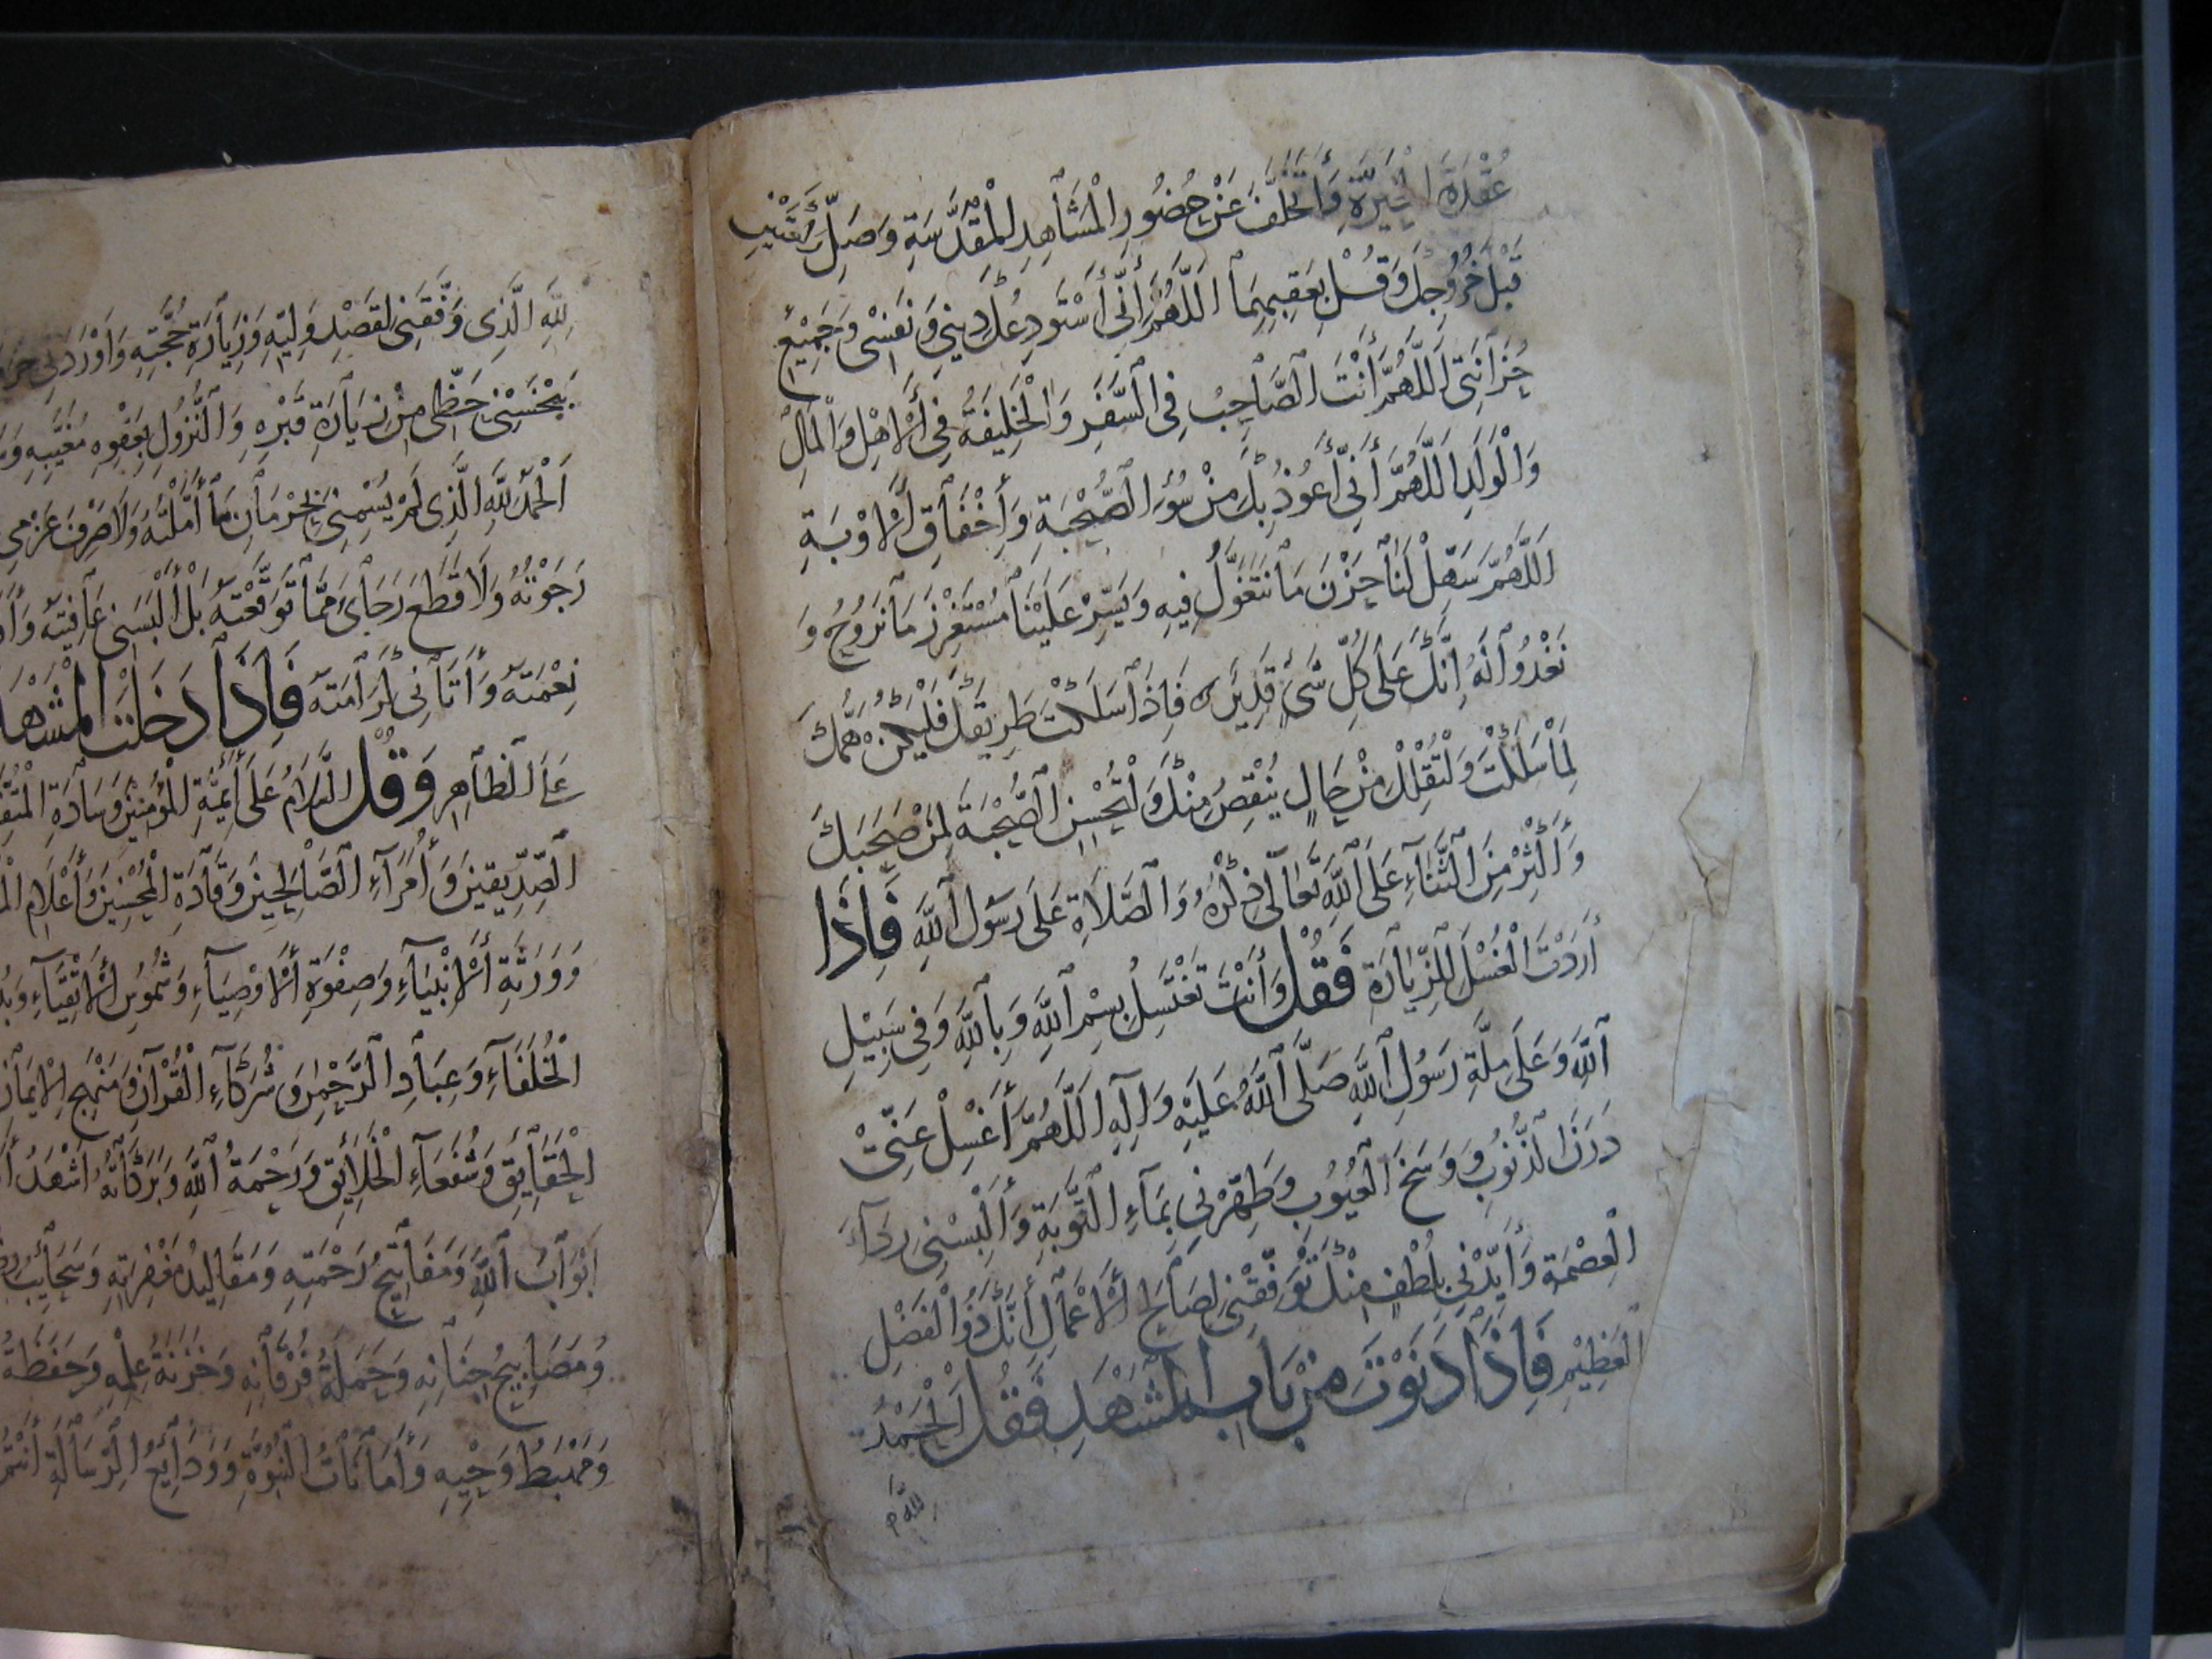 عُقْدَةَ الْحَيْرَةِ وَالتَّخَلُّفَ عَنْ حُضُورِ الْمَشَاهِدِ الْمُقَدَّسَةِ وَصَلِّ رَكْعَتَيْنِ
قَبْلَ خُرُوجِكَ وَقُلْ بِعَقِبِهِمَا اَللَّهُمَّ أَنِّي أَسْتَودِعُكَ دِينِي وَنَفْسِي وَجَمِيْعَ
حُزَانَتِي اَللَّهُمَّ أَنْتَ الصَّاحِبُ فِي السَّفَرِ وَالْخَلِيفَةُ فِي الْأَهْلِ وَالْمَالِ
وَالْوَلَدِ اَللَّهُمَّ أَنِّي أَعُوذُ بِكَ مِنْ سُوْءِ الصُّحْبَةِ وَأَخْفَاقِ الْأَوْبَةِ
اَللَّهُمَّ سَهِّلْ لَنَا حَزْنَ مَا نَتَغَوَّلُ فِيهِ وَيَسِّرْ عَلَيْنَا مُسْتَغْزَرَ مَا نَرُوحُ وَ
نَغْدُوا لَهُ إِنَّكَ عَلَى كُلِّ شَيْءٍ قَدِيْرٌ فَاِذَا سَلَكْتَ طَرِيقَكَ فَلْيَكُنْ هَمُّكَ
لِمَا سَلَكْتَ وَلْتُقْلِلْ مِنْ حَالٍ يُنْقِصُ مِنْكَ وَلْتُحْسِنِ الصُّحْبَةَ لِمَنْ صَحِبَكَ
وَأَكْثِرْ مِنَ الثَّنَاءِ عَلَى اللَّهِ تَعَالَى ذِكْرُهُ وَالصَّلَاةِ عَلَى رَسُولِ اللَّهِ فَاِذَا
أَرَدْتَ الْغُسْلَ لِلزِّيَارَةِ فَقُلْ وَأَنْتَ تَغْتَسِلُ بِسْمِ اللَّهِ وَبِاللَّهِ وَفِي سَبِيْلِ
اللَّهِ وَعَلَى مِلَّةِ رَسُولِ اللَّهِ صَلَّى اللَّهُ عَلَيْهِ وَاٰلِهِ اَللَّهُمَّ أَغْسِلْ عَنِّي
دَرَنَ الذُّنُوبِ وَوَسَخَ الْعُيُوبِ وَطَهِّرْنِي بِمَاءِ التَّوْبَةِ وَأَلْبِسْنِي رِدَاءَ
الْعِصْمَةِ وَأَيِّدْنِي بِلُطْفٍ مِنْكَ تُوَفِّقْنِي لِصَالِحِ الْأَعْمَالِ أَنَّكَ ذُو الْفَضْلِ
الْعَظِيْمِ فَاِذَا دَنَوْتَ مِنْ بَابِ الْمَشْهَدِ فَقُلْ اَلْحَمْدُ
لِلَّهِ
لِلَّهِ الَّذِي وَفَّقَنِي لِقَصْدِ وَلِيِّهِ وَزِيَارَةِ حُجَّتِهِ وَأَوْرَدَنِي
يَبْخَسْنِي حَظِّي مِنْ زِيَارَةِ قَبْرِهِ وَالنُّزُولِ بِعَقْوِهِ مُغَيَّبِهِ
اَلْحَمْدُ لِلَّهِ الَّذِي لَمْ يَسِمْنِي بِحِرْمَانِ مَا أَمَّلْتُهُ وَلَا صَرَفَ عَزْمِي
رَجَوْتُهُ وَلَا قَطَعَ رَجَائِي مِمَّا تَوَقَّعْتُهُ بَلْ أَلْبَسَنِي عَافِيَتَهُ
نِعْمَتَهُ وَأَتَانِي كَرَامَتَهُ فَاِذَا دَخَلْتَ الْمَشْهَدَ
عَلَى الظَّاهِرِ وَقُلْ السَّلَامُ عَلَى أَئِمَّةِ الْمُؤْمِنِيْنَ وَسَادَةِ الْمُتَّقِينَ
الصِّدِّيقِينَ وَأُمَرَاءِ الصَّالِحِينَ وَقَادَةِ الْمُحْسِنِينَ وَأَعْلَامِ
وَوَرَثَةِ الْأَنْبِيَاءِ وَصِفْوَةِ الْأَوْصِيَاءِ وَشُمُوسِ الْأَتْقِيَاءِ
الْخُلَفَاءِ وَعِبَادِ الرَّحْمٰنِ وَشُرَكَاءِ الْقُرْآنِ وَمَنْهَجِ الْاِيمَانِ
الْحَقَايِقِ وَشُفَعَاءِ الْخَلَايِقِ وَرَحْمَةُ اللَّهِ وَبَرَكَاتُهُ اَشْهَدُ
اَبْوَابُ اللَّهِ وَمَفَاتِيحُ رَحْمَتِهِ وَمَقَالِيدُ مَغْفِرَتِهِ وَسَحَايِبُ
وَمَصَابِيحُ جِنَانِهِ وَحَمَلَةُ فُرْقَانِهِ وَخَزَنَةُ عِلْمِهِ وَحَفَظَةُ
وَمَهْبَطُ وَحْيِهِ وَأَمَانَاتُ النُّبُوَّةِ وَوَدَايِعُ الرِّسَالَةِ أَنْتُمْ